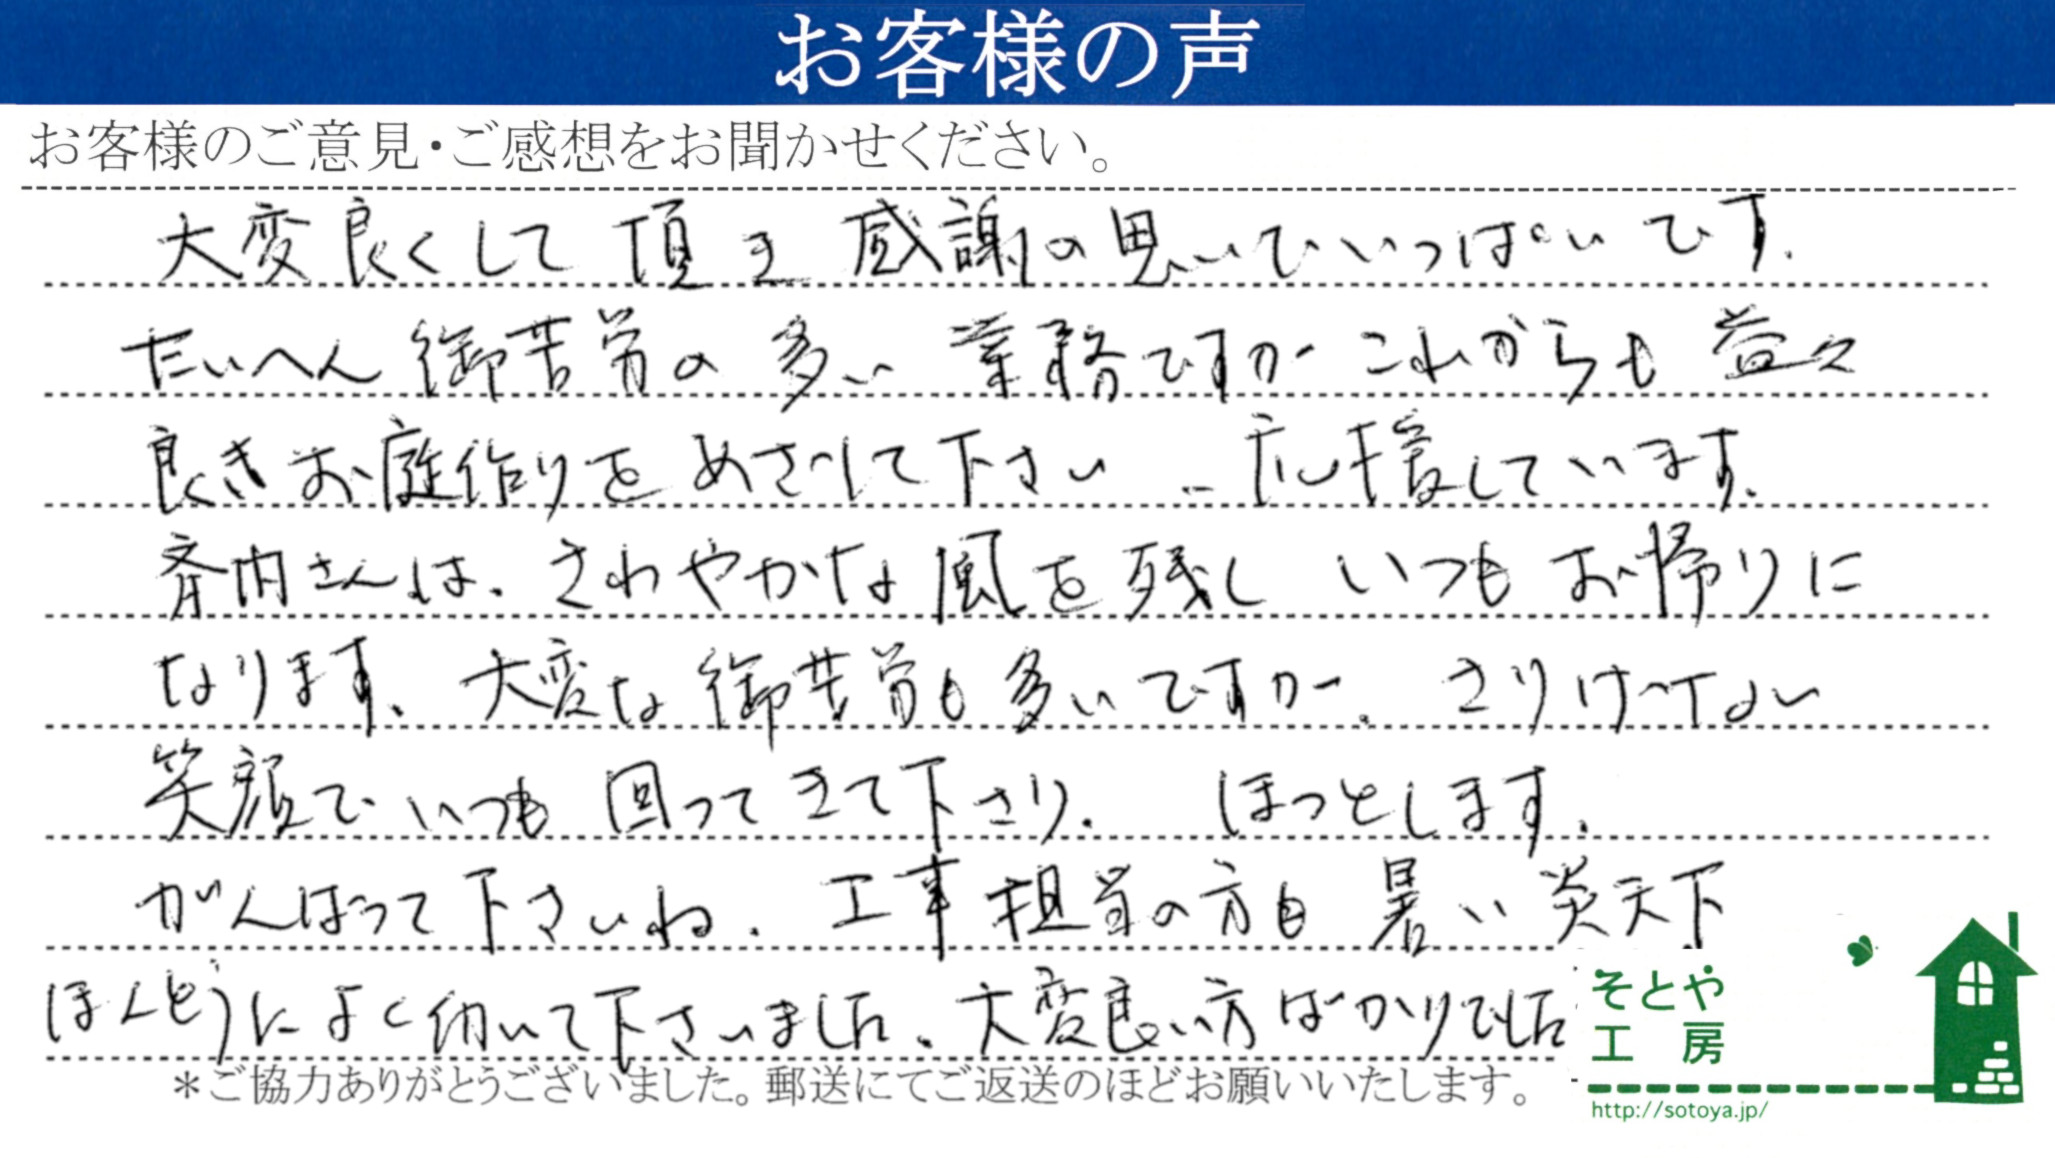 お客様の声
お客様のご意見・ご感想をお聞かせください。
大変良くして頂き感謝の思いでいっぱいです。
たいへん御苦労の多い業務ですがこれからも益々
良きお庭作りをめざして下さい‥応援しています。
斉内さんは、さわやかな風を残しいつもお帰りに
なります、大変な御苦労も多いですが、さりげない
笑顔でいつも回ってきて下さり、ほっとします。
がんばって下さいね。工事担当の方も暑い炎天下
ほんとうによく働いて下さいました、大変良い方ばかりでした
＊ご協力ありがとうございました。郵送にてご返送のほどお願いいたします。
そとや
工房
http://sotoya.jp/